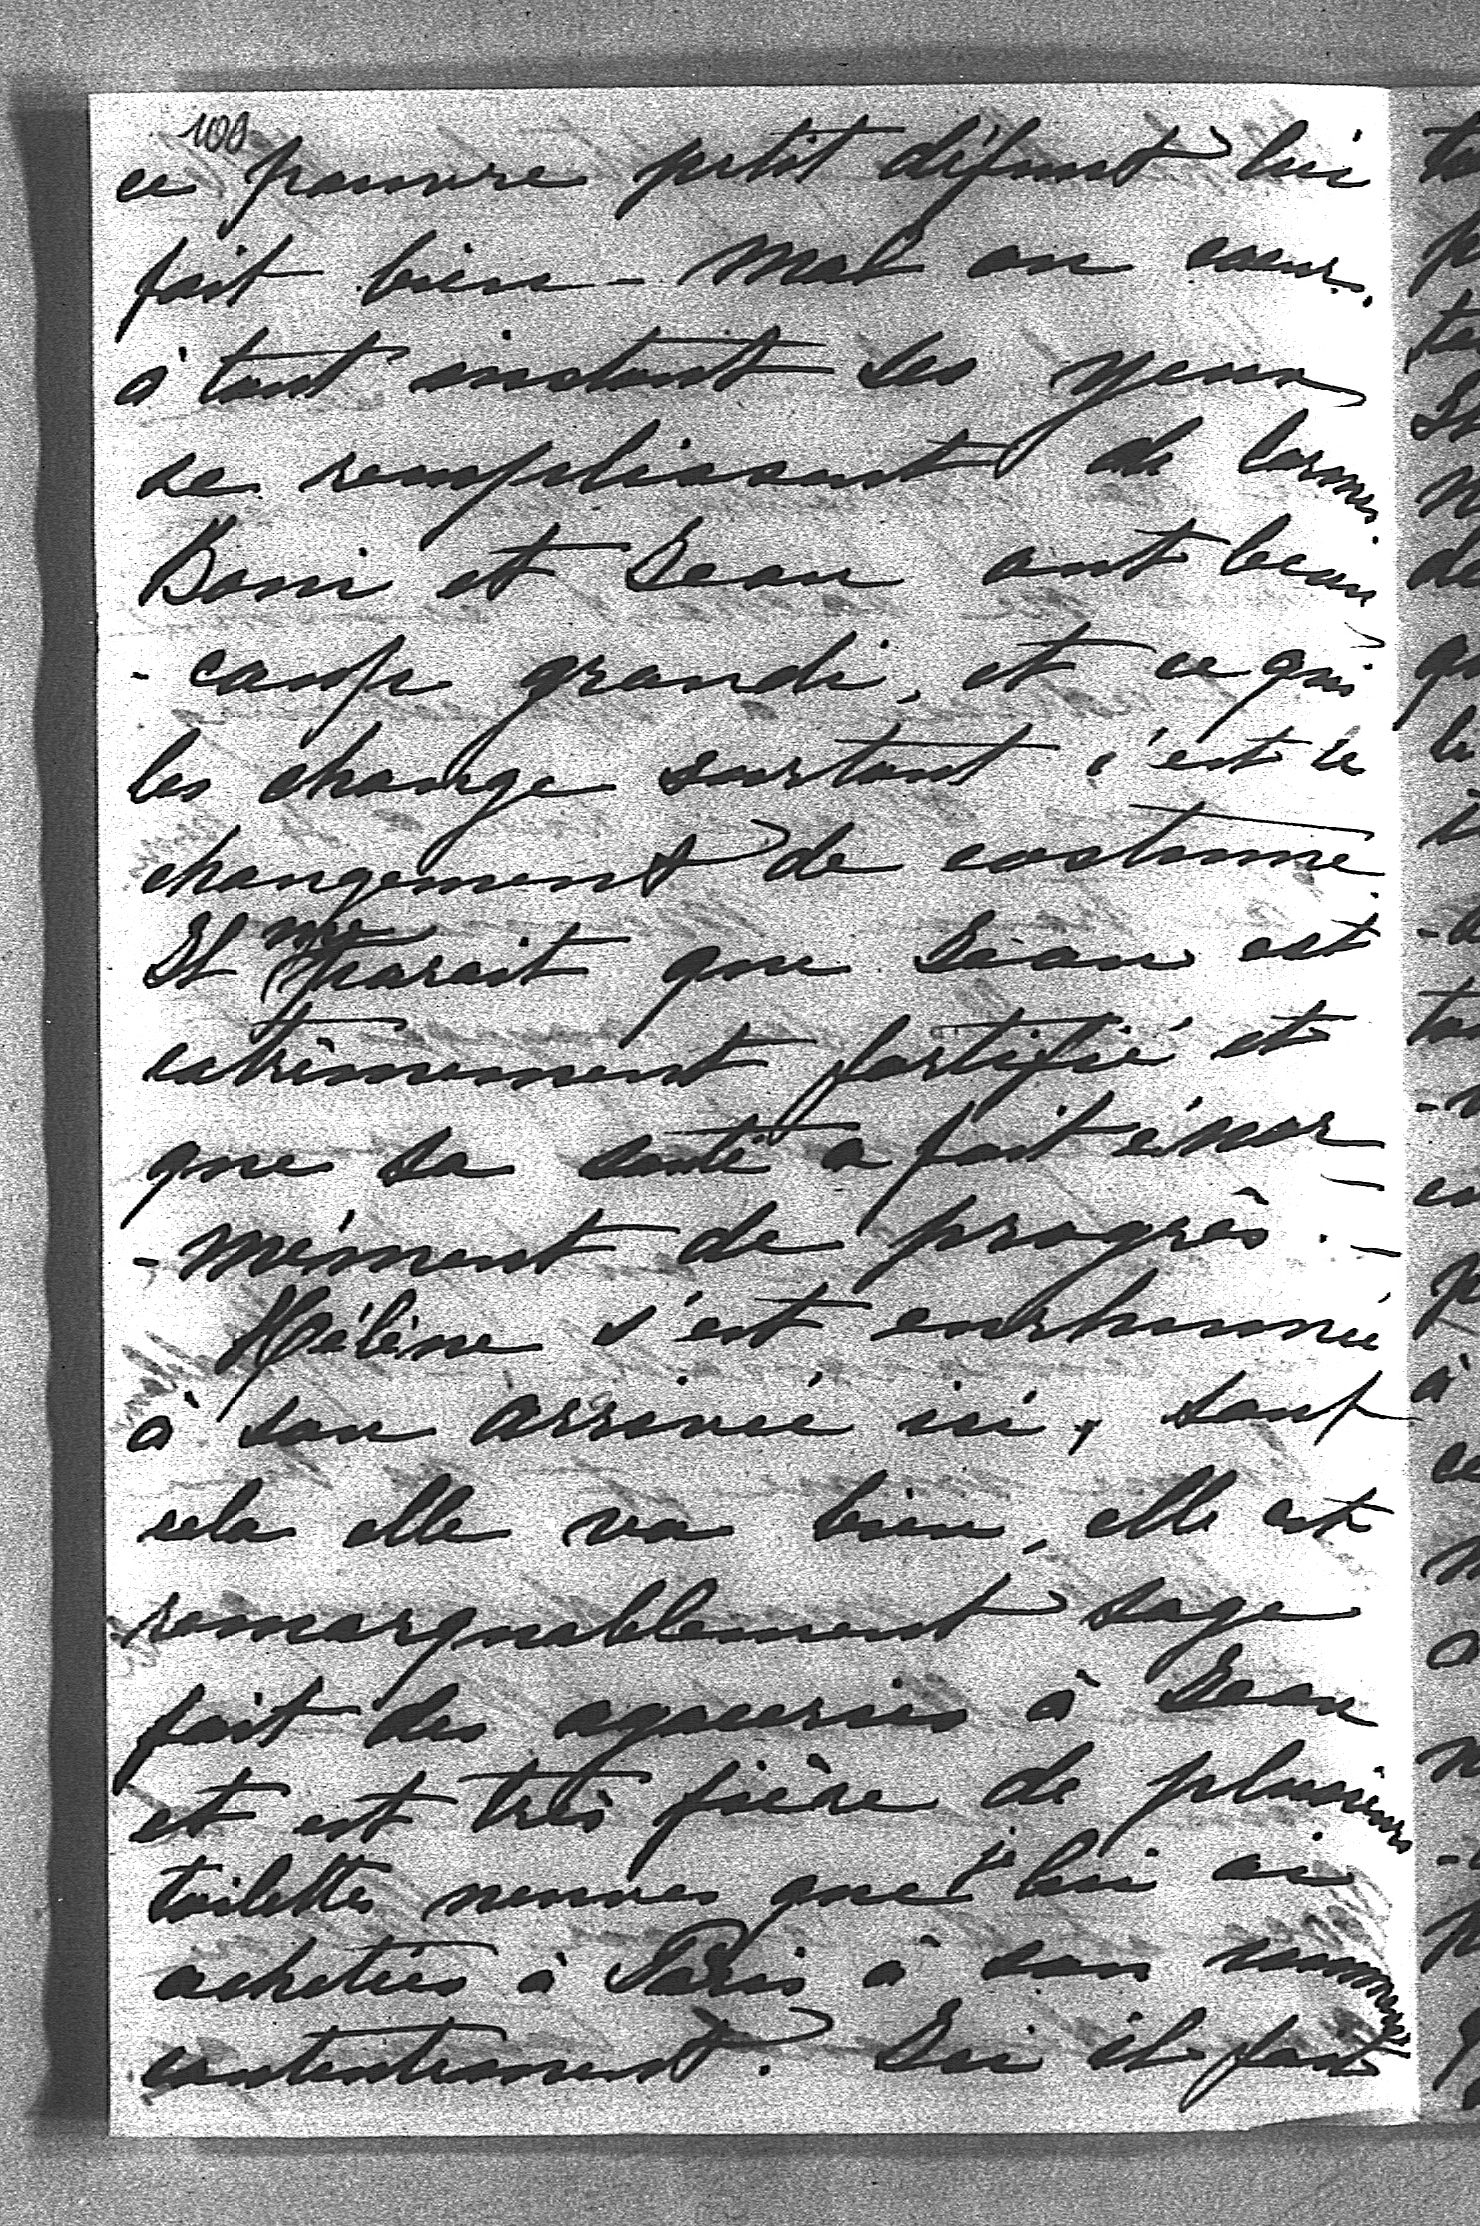 100
ce pauvre petit défunt lui
fait bien - mal au cœur.
à tout instant ses yeux
se remplissent de larmes.
Boni et Jean ont beau
- coup grandi, et ce qui
les change surtout c'est le
changement de costume.
Il me parait que Jean est
extrêmement fortifié et
que sa santé a fait énor
- mément de progrès. -
Hélène s'est enrhumée
à son arrivée ici, sauf
cela elle va bien, elle est
remarquablement sage
fait des agaceries à Jean
et est très fière de plusieurs
toilettes neuves que je lui ai
achetées à Paris à son immense
contentement. Ici il fait